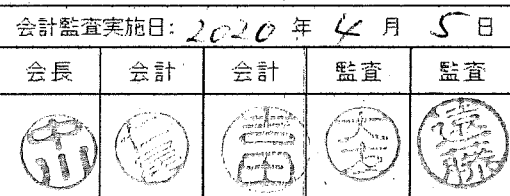 会計監査実施日: 2020 年 4 月 5 日
会長 会計 会計 監査 監査
中川 吉田 遠藤